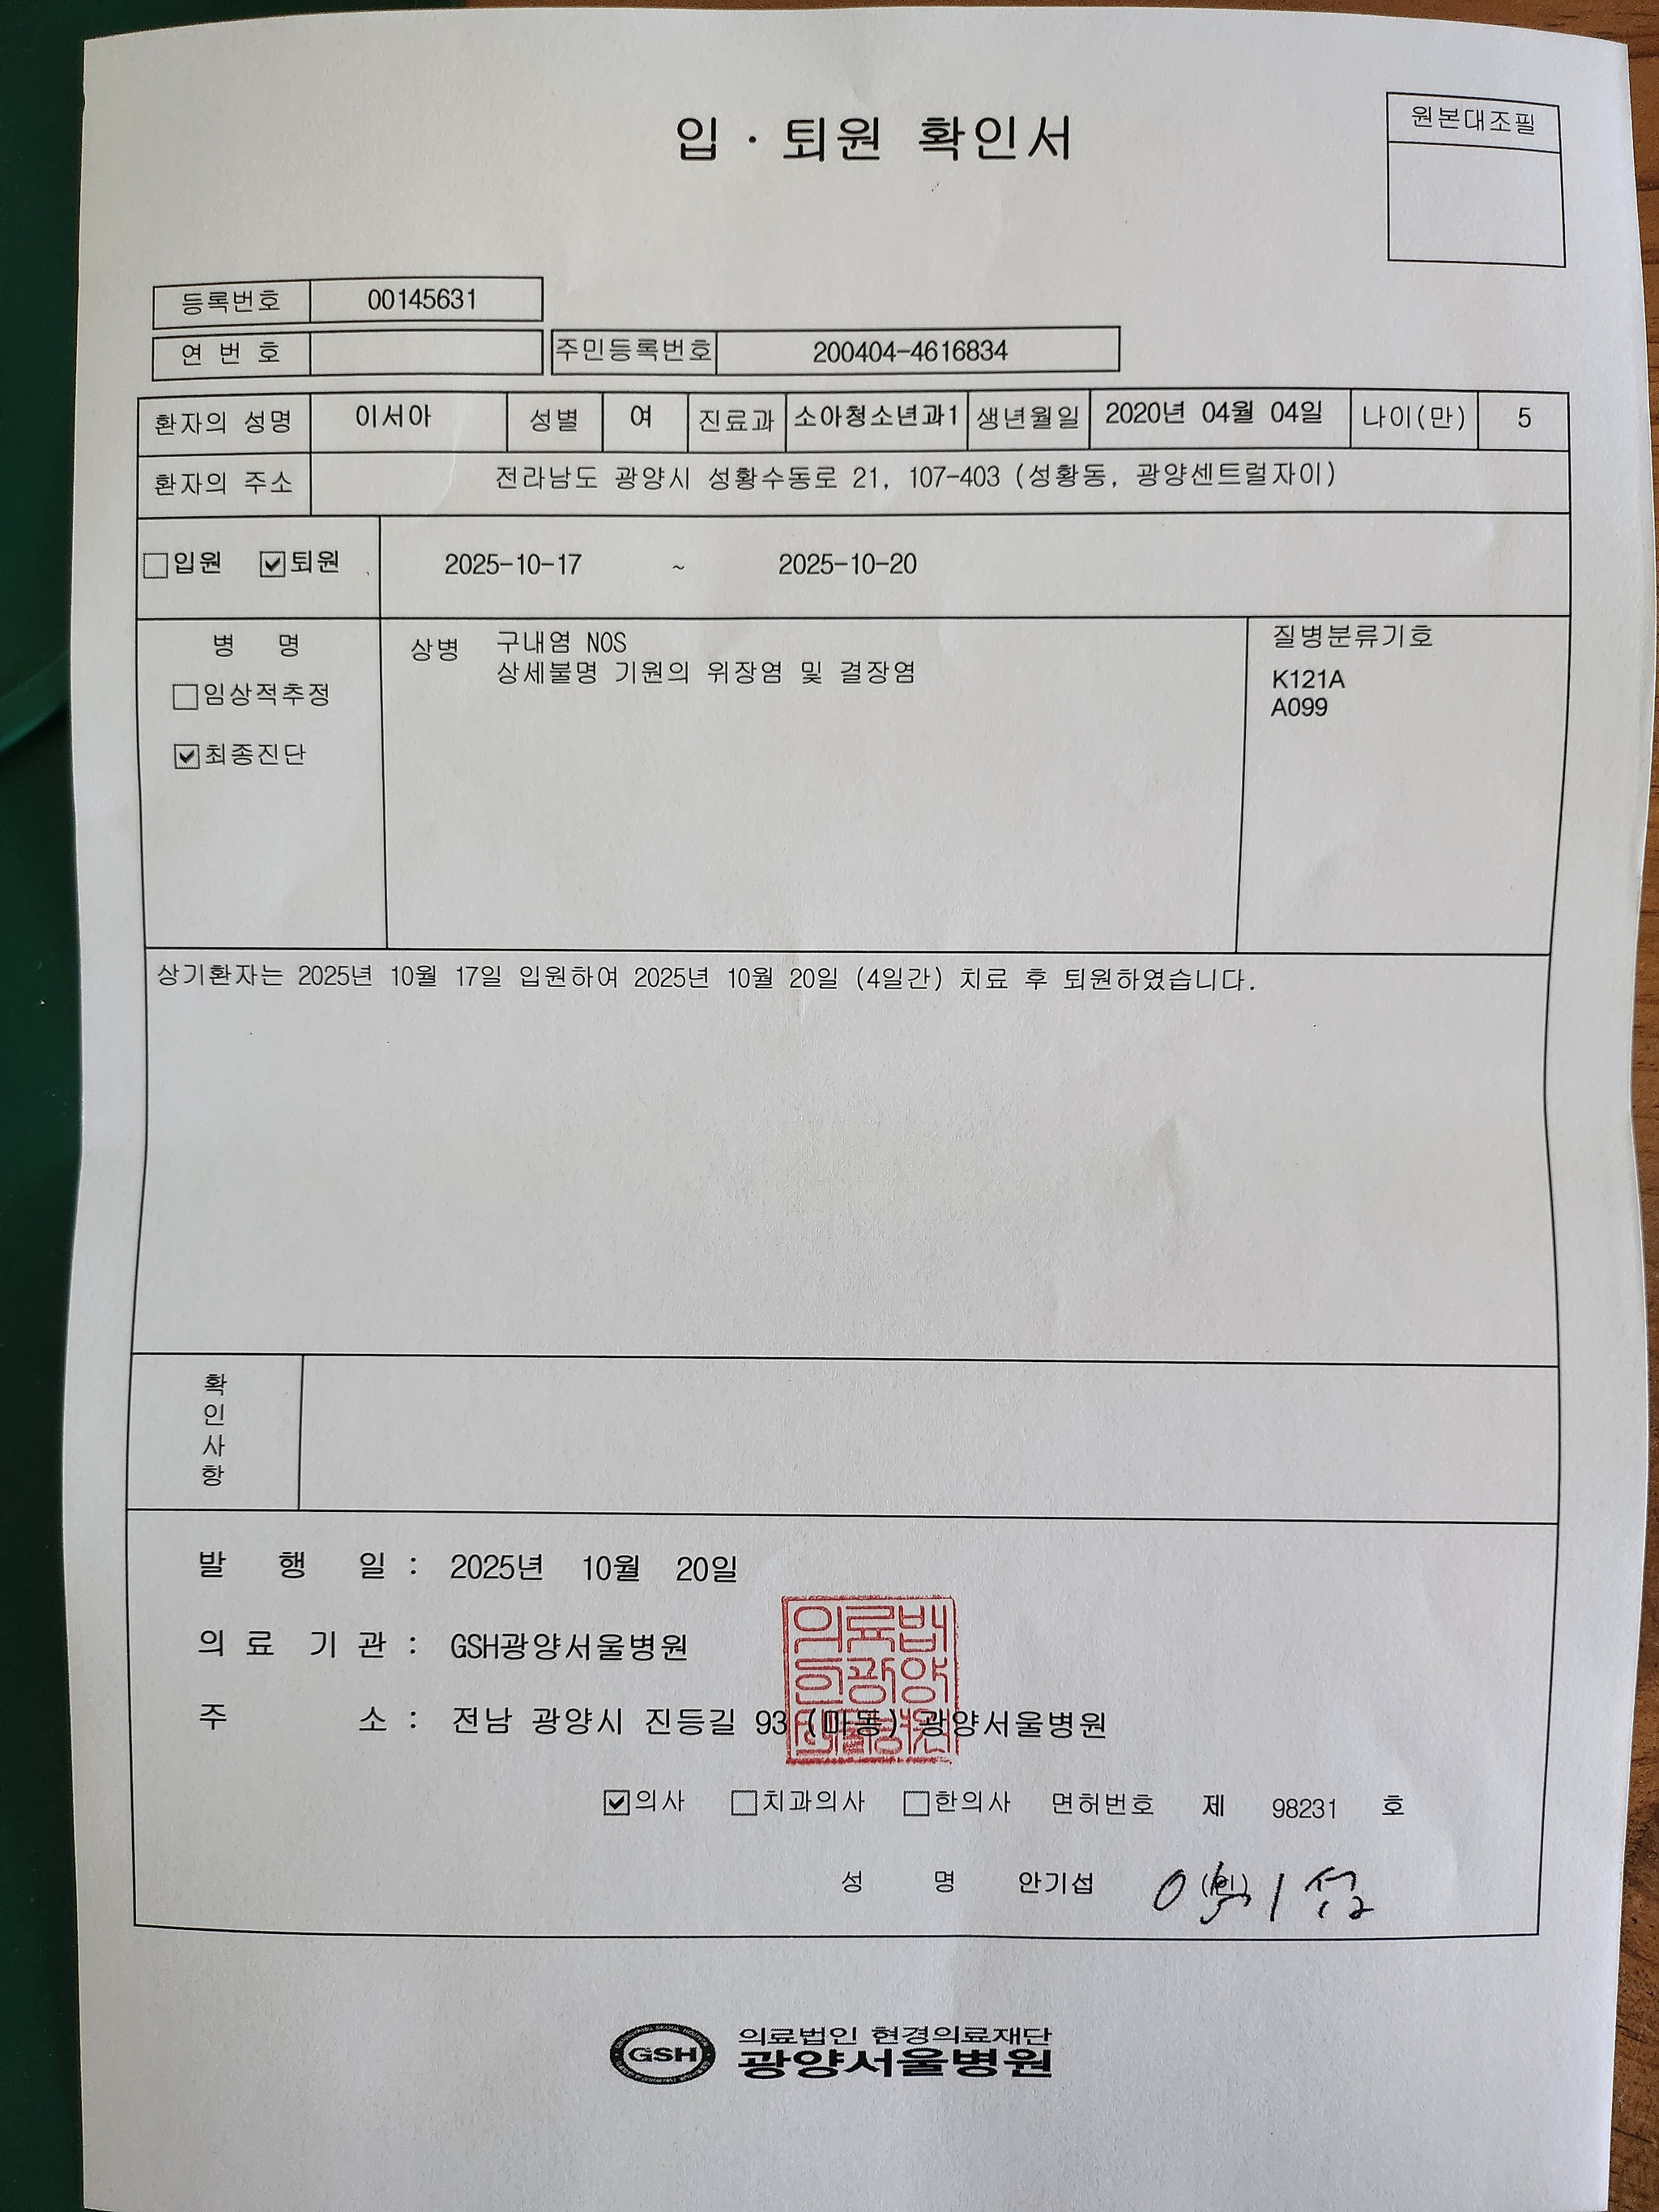 입 · 퇴원 확인서
원본대조필
등록번호 00145631
연 번 호 주민등록번호 200404-4616834
환자의 성명 이서아 성별 여 진료과 소아청소년과1 생년월일 2020년 04월 04일 나이(만) 5
환자의 주소 전라남도 광양시 성황수동로 21, 107-403 (성황동, 광양센트럴자이)
입원 퇴원 2025-10-17 ~ 2025-10-20
병 명 상병 구내염 NOS 질병분류기호
상세불명 기원의 위장염 및 결장염 K121A
임상적추정 A099
최종진단
상기환자는 2025년 10월 17일 입원하여 2025년 10월 20일 (4일간) 치료 후 퇴원하였습니다.
확
인
사
항
발 행 일 : 2025년 10월 20일
의 료 기 관 : GSH광양서울병원
주 소 : 전남 광양시 진등길 93 (마동) 광양서울병원
의료법
인광양
서울병원
의사 치과의사 한의사 면허번호 제 98231 호
성 명 안기섭 (인) 안기섭
GSH
의료법인 현경의료재단
광양서울병원